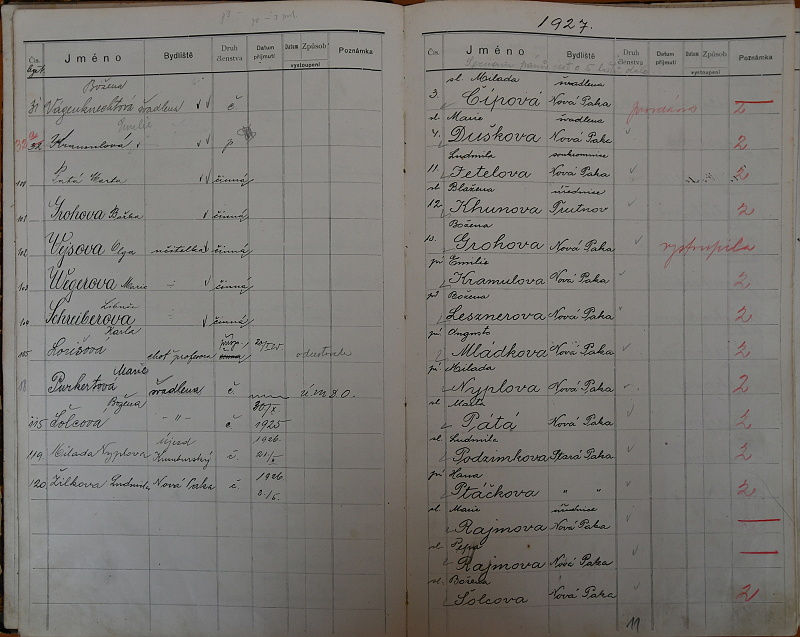 Čís. Jméno Bydliště Druh členstva Datum přijmutí Datum Způsob vystoupení Poznámka
Božena
31 Vagenknechtová švadlena č
Emilie
32 Kramulova p
100 Pátá Marta činná
101 Grohova Boška činná
102 Výsova Olga učitelka činná
103 Wegerova Marie -"- činná
Libuše
104 Schreiberova činná
Karla
105 Lorišová choť profesora 20/IX 25
Marie
Purkertová švadlena č.
Božena 30/X
115 Šolcová -"- č 1925
Újezd 1926
119 Milada Nyplova Kumburský č. 21/5
120 Žilkova Ludmila Nová Paka č. 1926
2./6.
1927.
Čís. Jméno Bydliště Druh členstva Datum přijmutí Datum Způsob vystoupení Poznámka
sl. Milada švadlena
3. Čípová Nová Paka 2
sl. Marie švadlena
4. Duškova Nová Paka 2
Ludmila soukromnice
11. Fetelova Nová Paka 2
sl. Blažena úřednice
12. Khunova Trutnov 2
Božena
10. Grohova Nová Paka vystoupila
pí Emilie
Kramulova Nová Paka 2
pí Božena
Lesznerova Nová Paka 2
pí Augusta
Mládkova Nová Paka 2
pí Milada
Nyplova Nová Paka 2
sl. Marta
Pátá Nová Paka 2
sl. Ludmila
Podzimkova Stará Paka 2
pí Hana
Ptáčkova " " 2
sl. Marie úřednice
Rajmova Nová Paka
sl. Pepa
Rajmova Nová Paka
sl. Božena
Šolcova Nová Paka 2
11